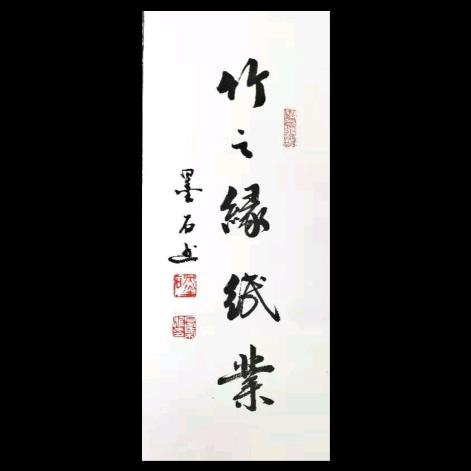 竹之缘纸业
墨石书